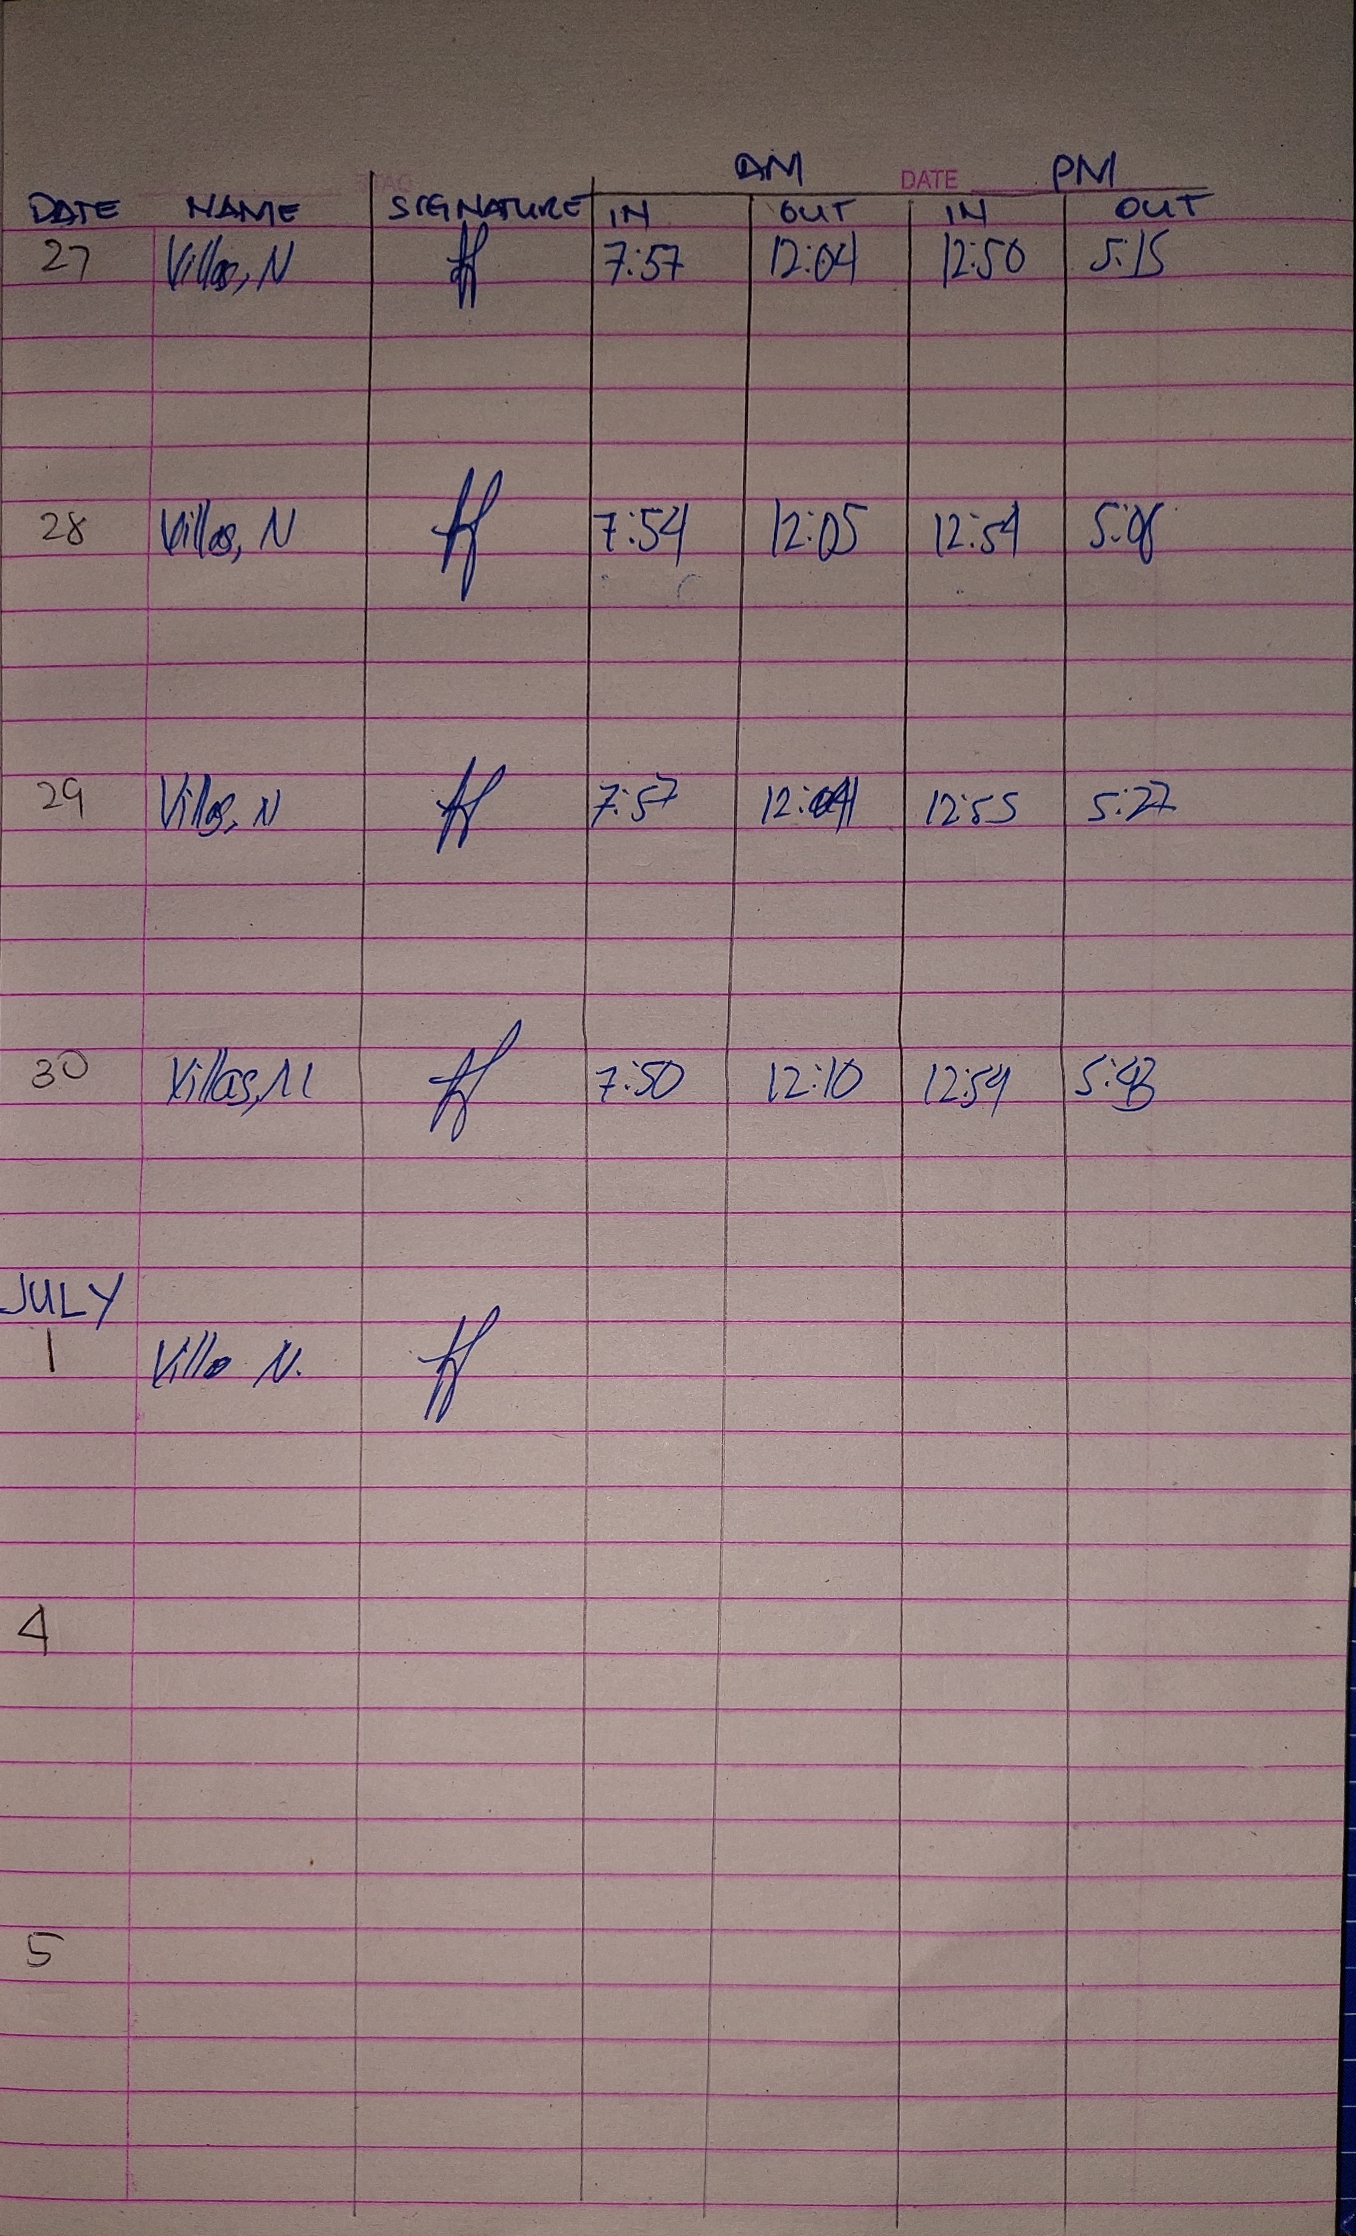 AM DATE PM
DATE NAME SIGNATURE IN OUT IN OUT
27 Villas, N 7:57 12:04 12:50 5:15
28 Villas, N 7:54 12:05 12:54 5:08
29 Villas, N 7:57 12:04 12:55 5:27
30 Villas, N 7:50 12:10 12:54 5:43
JULY
1 Villas N.
4
5